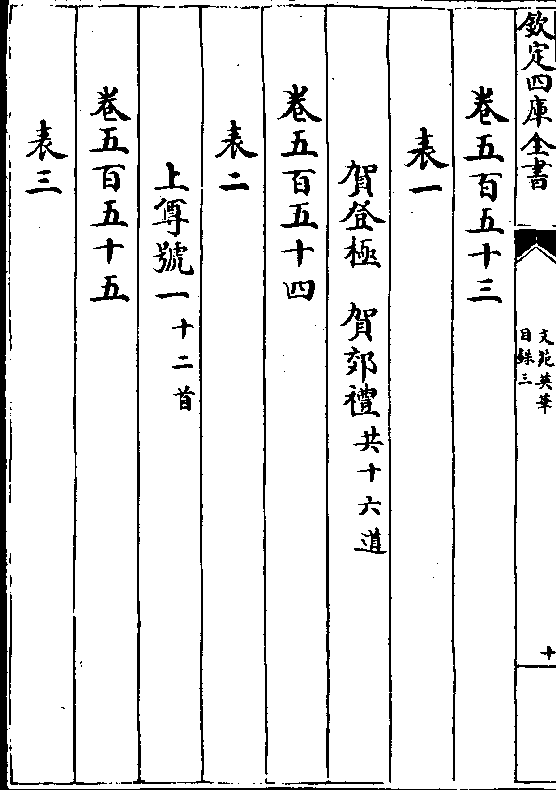 欽定四庫全書
文苑英華
目錄三
十
卷五百五十三
表一
賀登極　賀郊禮共十六道
卷五百五十四
表二
上尊號一十二首
卷五百五十五
表三